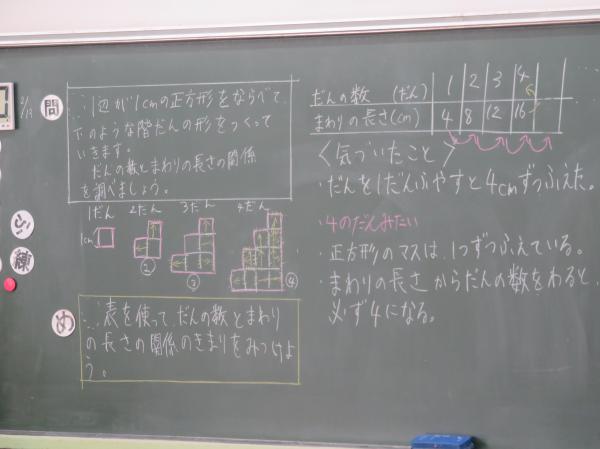 2/19
問
1辺が1cmの正方形をならべて、
下のような階だんの形をつくって
いきます。
だんの数とまわりの長さの関係
を調べましょう。
1だん 2だん 3だん 4だん
1cm
② ③ ④
練
め
表を使って、だんの数とまわり
の長さの関係のきまりをみつけよ
う。
だんの数 (だん) 1 2 3 4
まわりの長さ(cm) 4 8 12 16
<気づいたこと>
・だんを1だんふやすと4cmずつふえた。
・4のだんみたい
・正方形のマスは、1つずつふえている。
・まわりの長さからだんの数をわると、
必ず4になる。